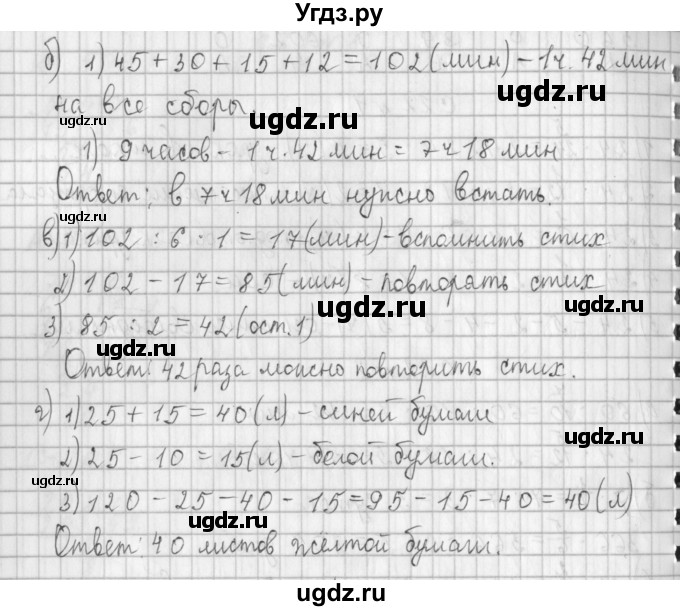 Угдз.ру
б) 1) 45 + 30 + 15 + 12 = 102 (мин) - 1ч. 42 мин
на все сборы.
ugdz.ru ugdz.ru
1) 9 часов - 1 ч. 42 мин = 7 ч 18 мин
ugdz.ru
Ответ: в 7 ч 18 мин нужно встать.
ugdz.ru
в) 1) 102 : 6 · 1 = 17 (мин) - вспомнить стих
2) 102 - 17 = 85 (мин) - повторять стих
ugdz.ru
3) 85 : 2 = 42 (ост. 1)
ugdz.ru
Ответ: 42 раза можно повторить стих.
ugdz.ru
г) 1) 25 + 15 = 40 (л) - синей бумаги
ugdz.ru
2) 25 - 10 = 15 (л) - белой бумаги.
ugdz.ru
3) 120 - 25 - 40 - 15 = 95 - 15 - 40 = 40 (л)
ugdz.ru
Ответ: 40 листов жёлтой бумаги.
ugdz.ru
ugdz.ru